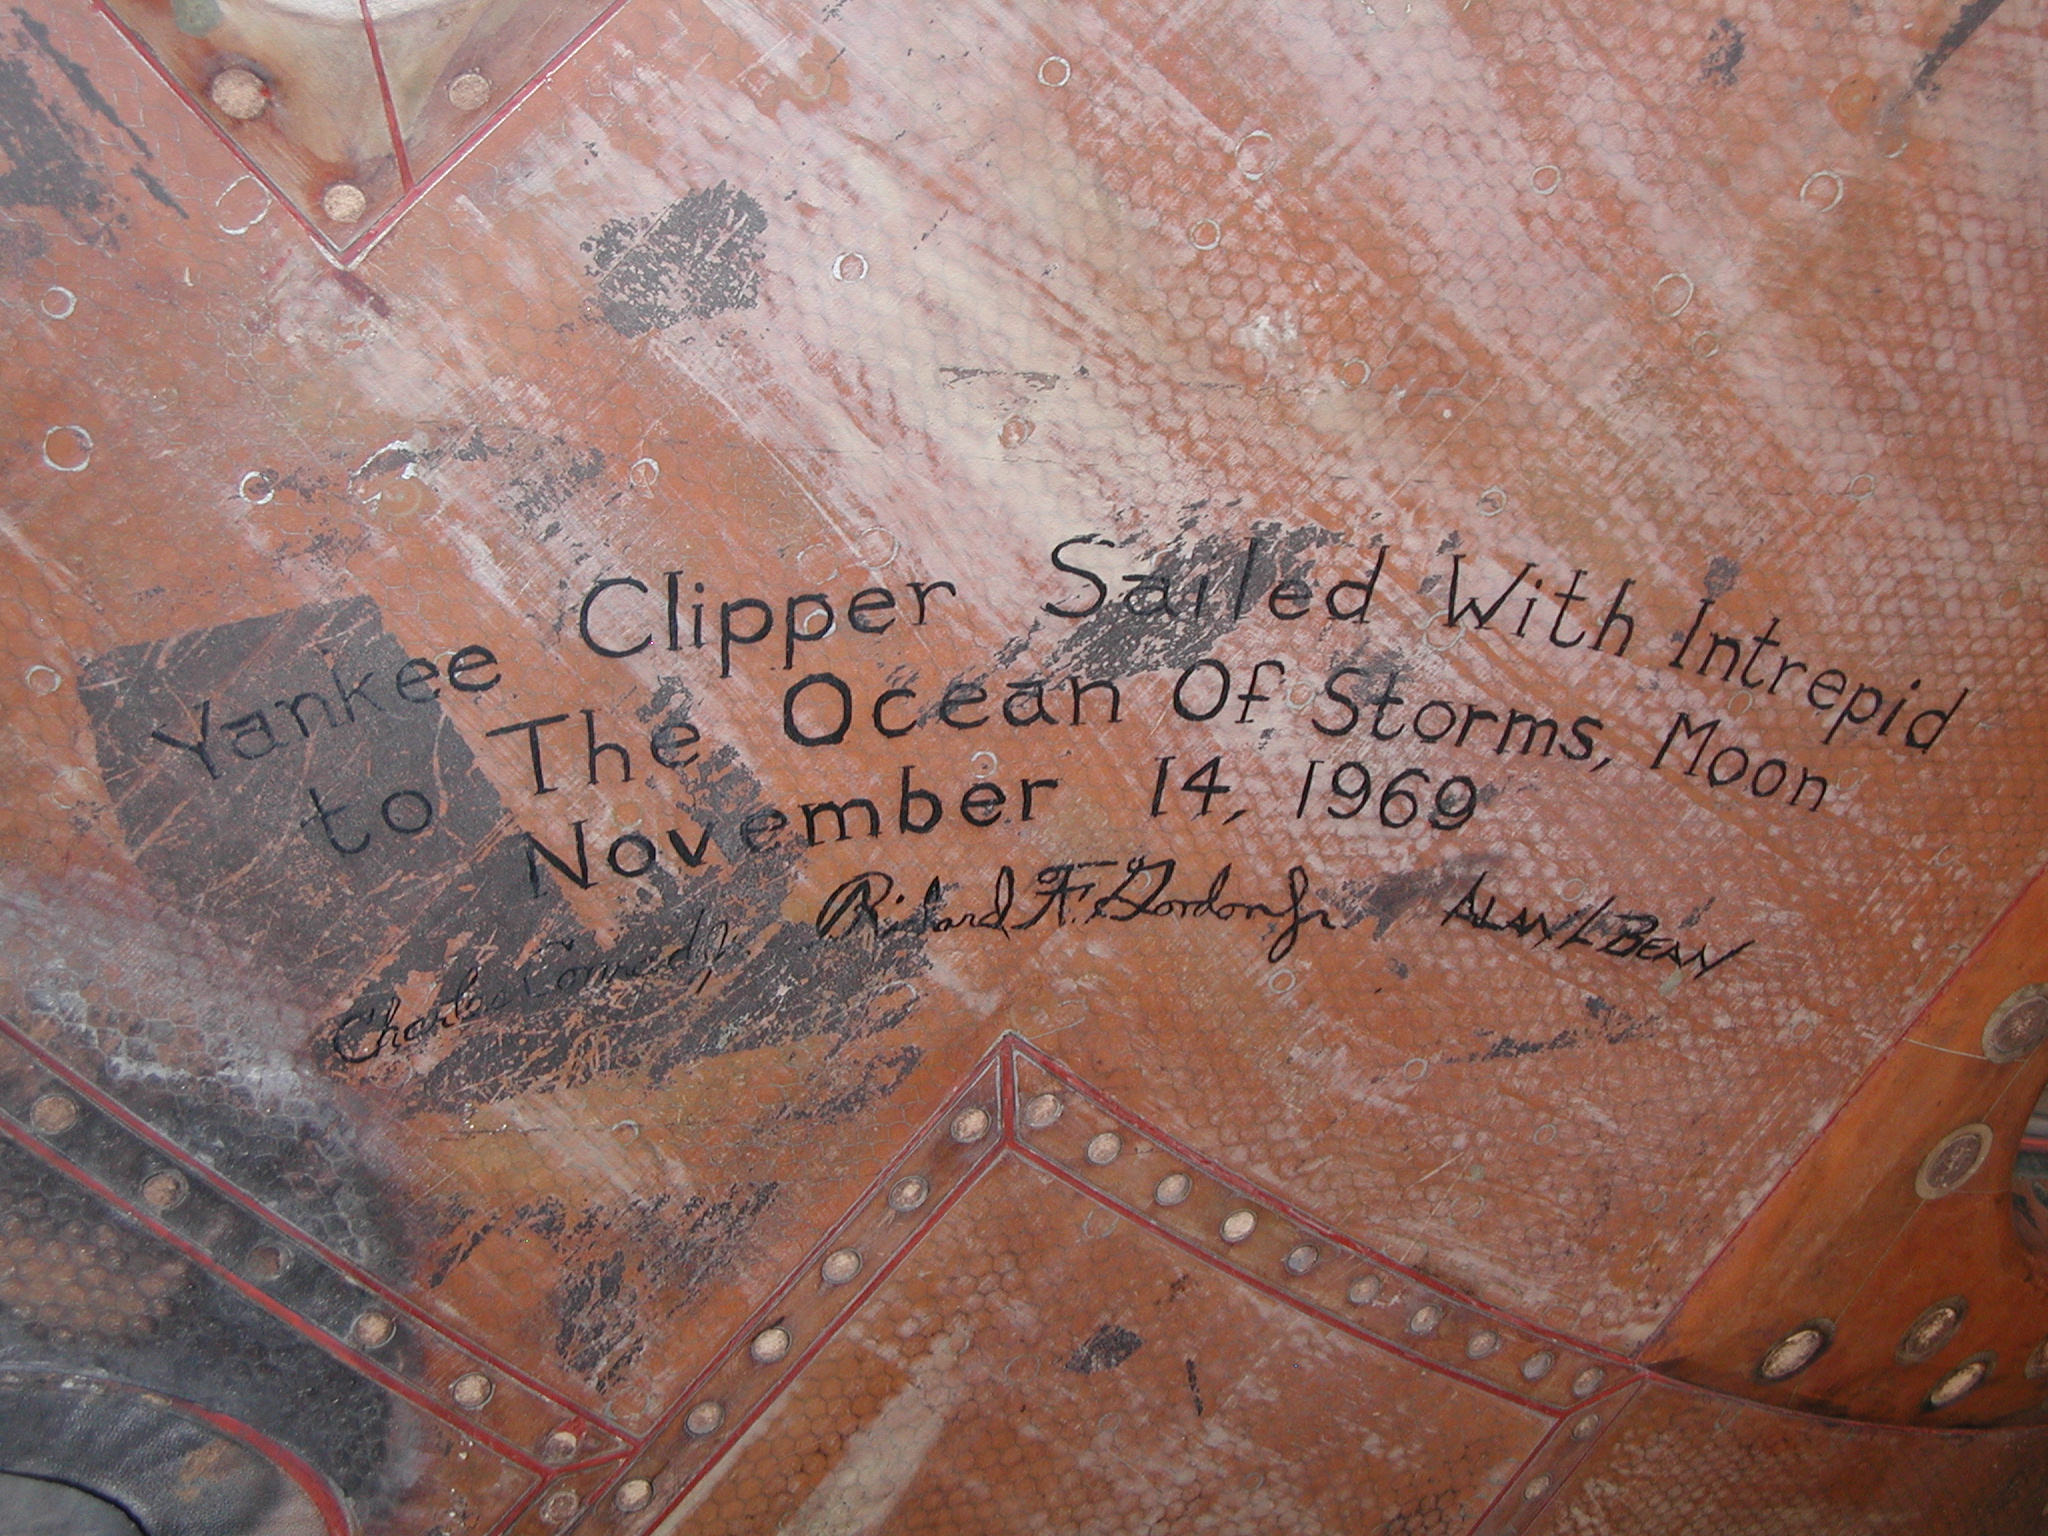 Yankee Clipper Sailed With Intrepid
to The Ocean Of Storms, Moon
November 14, 1969
Charles Conrad Jr. Richard F. Gordon Jr Alan L Bean